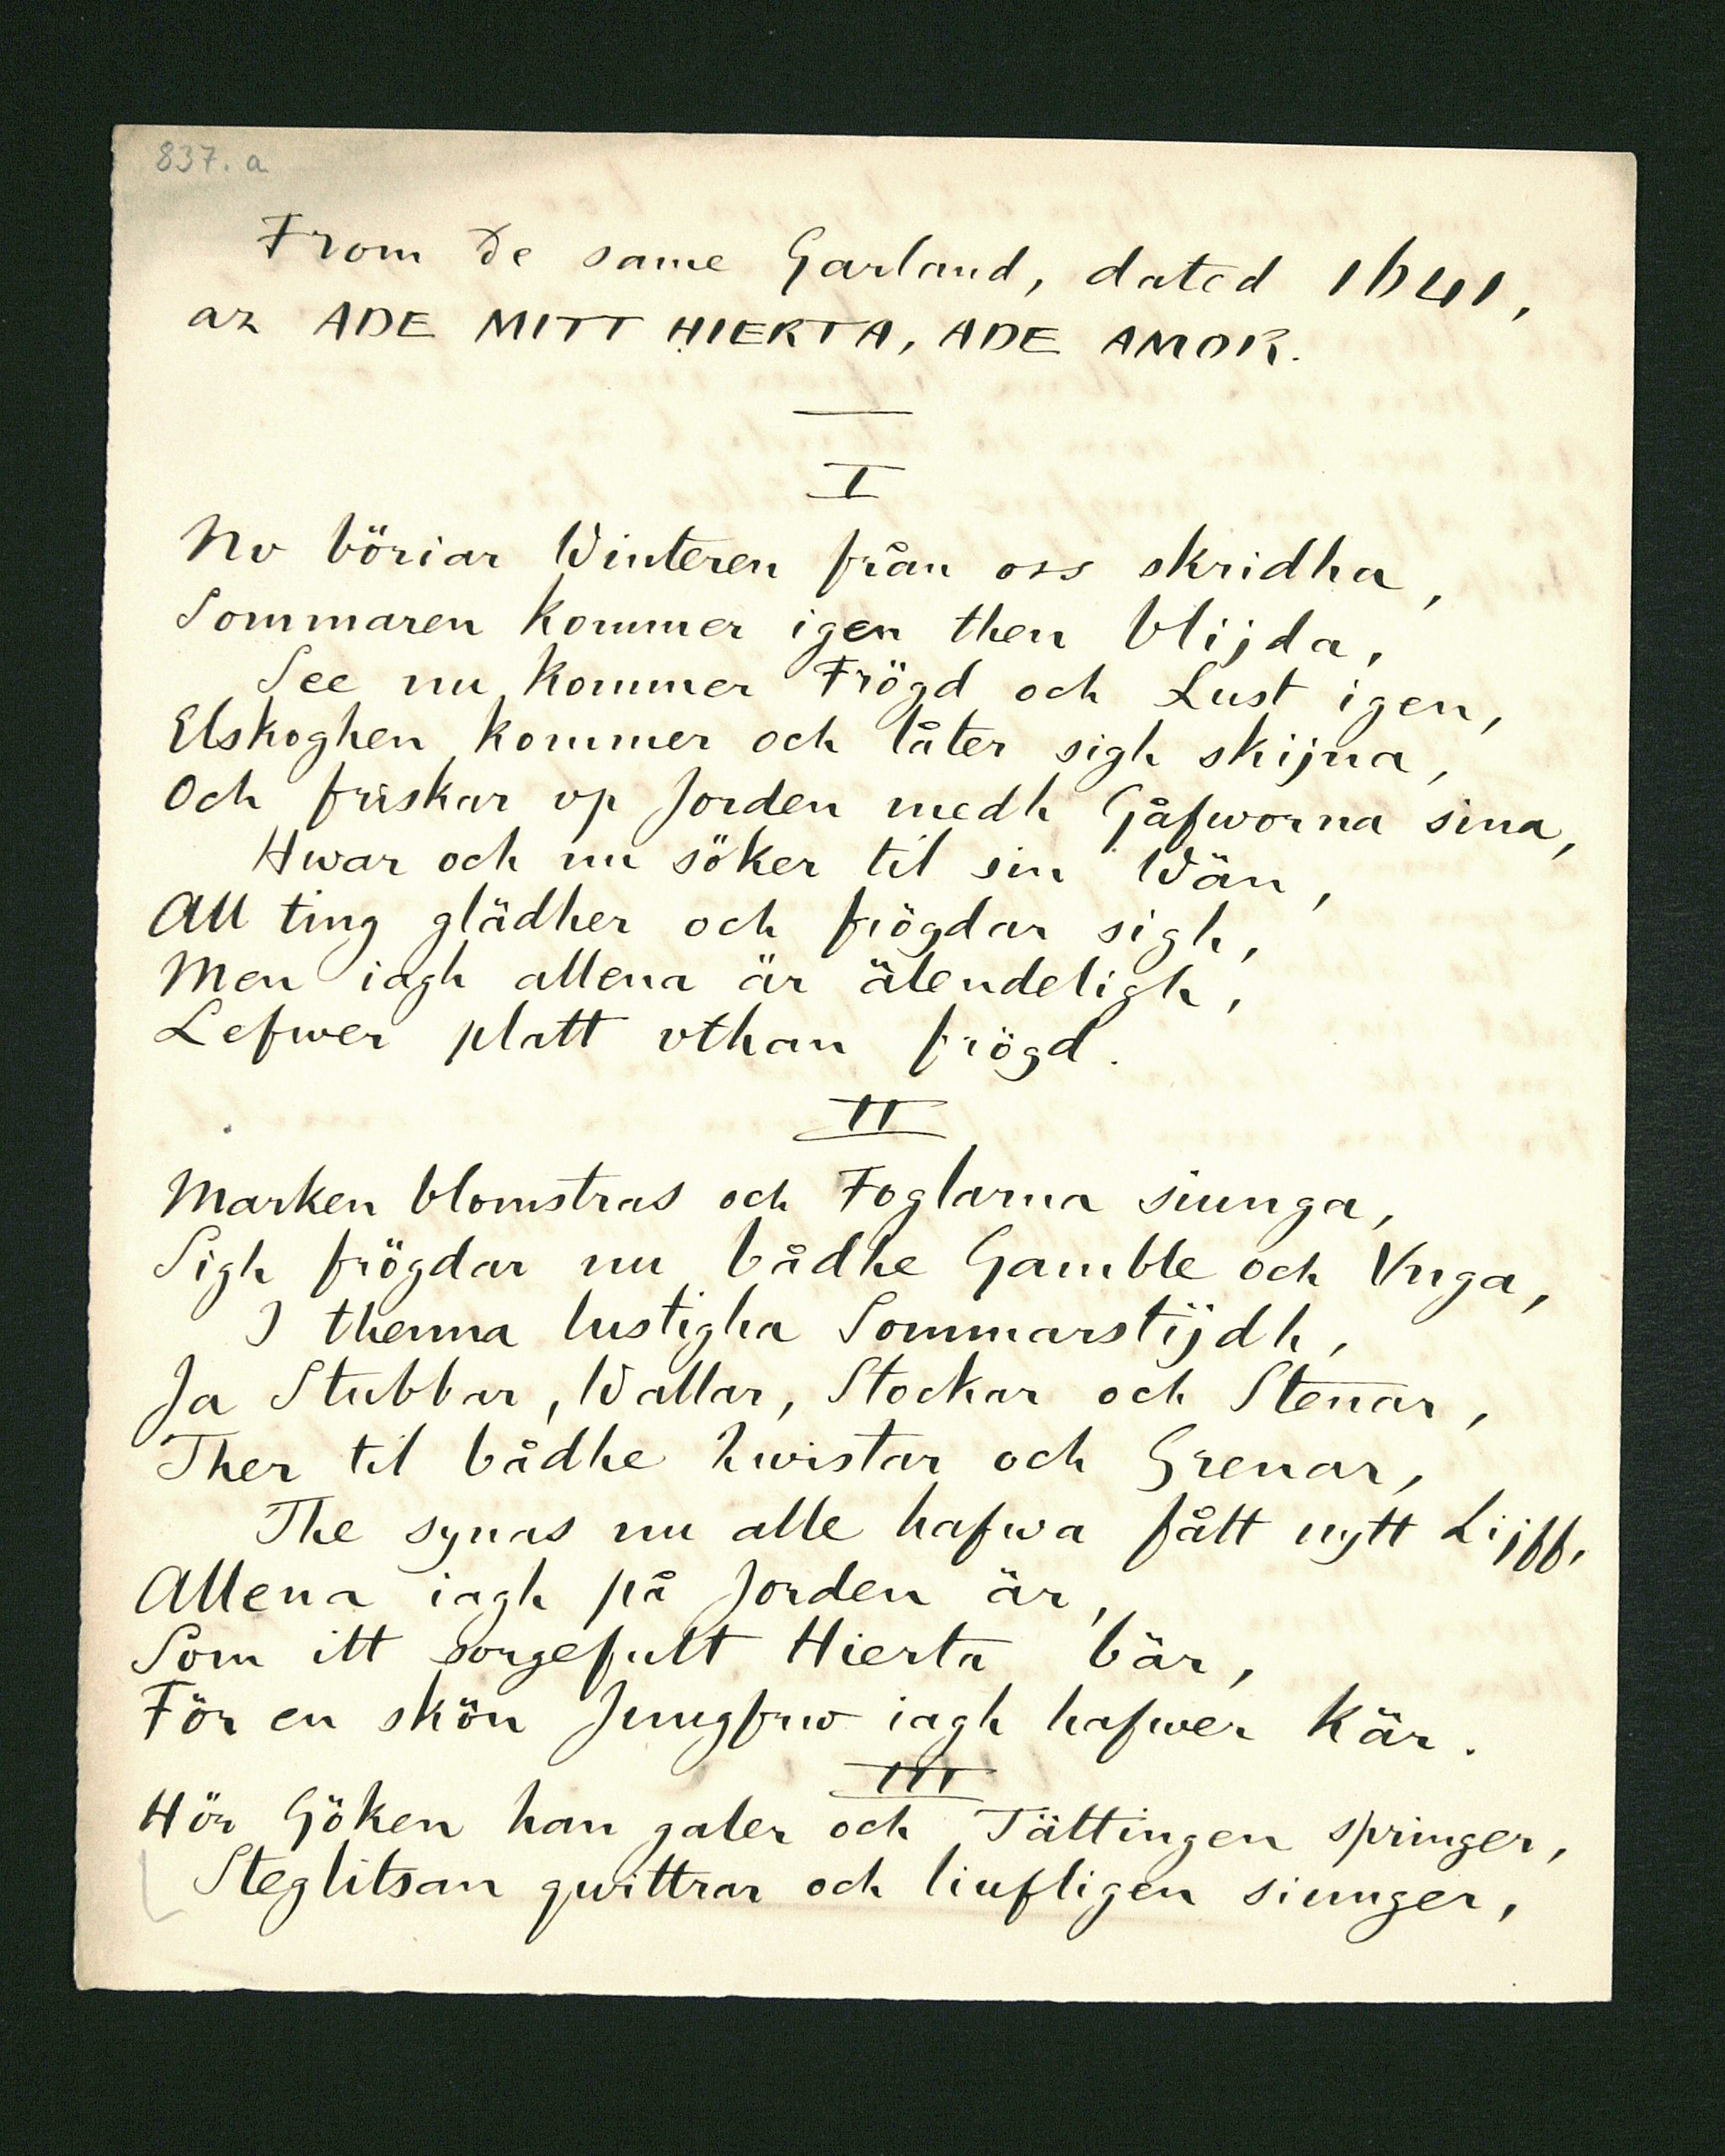 837. a
From de same Garland, dated 1641,
az ADE MITT HIERTA, ADE AMOR.
I
Nv böriar Winteren från oss skridha,
Sommaren kommer igen then blijda,
See nu kommer Frögd och Lust igen,
Elskoghen kommer och låter sigh skijna,
Och friskar vp Jorden medh Gåfworna sina,
Hwar och nu söker til sin Wän,
All ting glädher och frögdar sigh,
Men iagh allena är älendeligh,
Lefwer platt vthan frögd.
II
Marken blomstras och Foglarna siunga,
Sigh frögdar nu bådhe Gamble och Vnga,
I thenna lustigha Sommarstijdh,
Ja Stubbar, Wallar, Stockar och Stenar,
Ther til bådhe hwistar och Grenar,
The synas nu alle hafwa fått nytt Lijff,
Allena iagh på Jorden är,
Som itt sorgefult Hierta bär,
För en skön Jungfrw iagh hafwer kär.
III
Hör Göken han galer och Tättingen springer,
Steglitsan qwittrar och liufligen siunger,